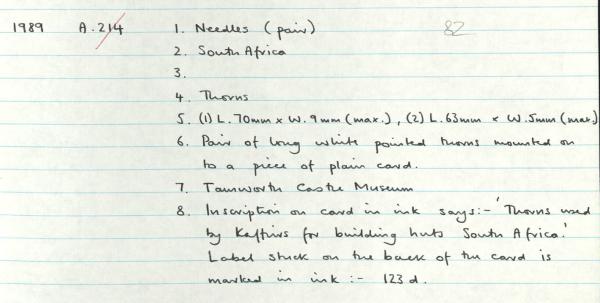 1989 A.214 1. Needles (pair) 82
2. South Africa
3.
4. Thorns
5. (1) L. 70mm x W. 9mm (max.), (2) L. 63mm x W. 5mm (max)
6. Pair of long white pointed thorns mounted on
to a piece of plain card.
7. Tamworth Castle Museum
8. Inscription on card in ink says:- 'Thorns used
by Kaffirs for building huts South Africa.'
Label stuck on the back of the card is
marked in ink :- 123d.